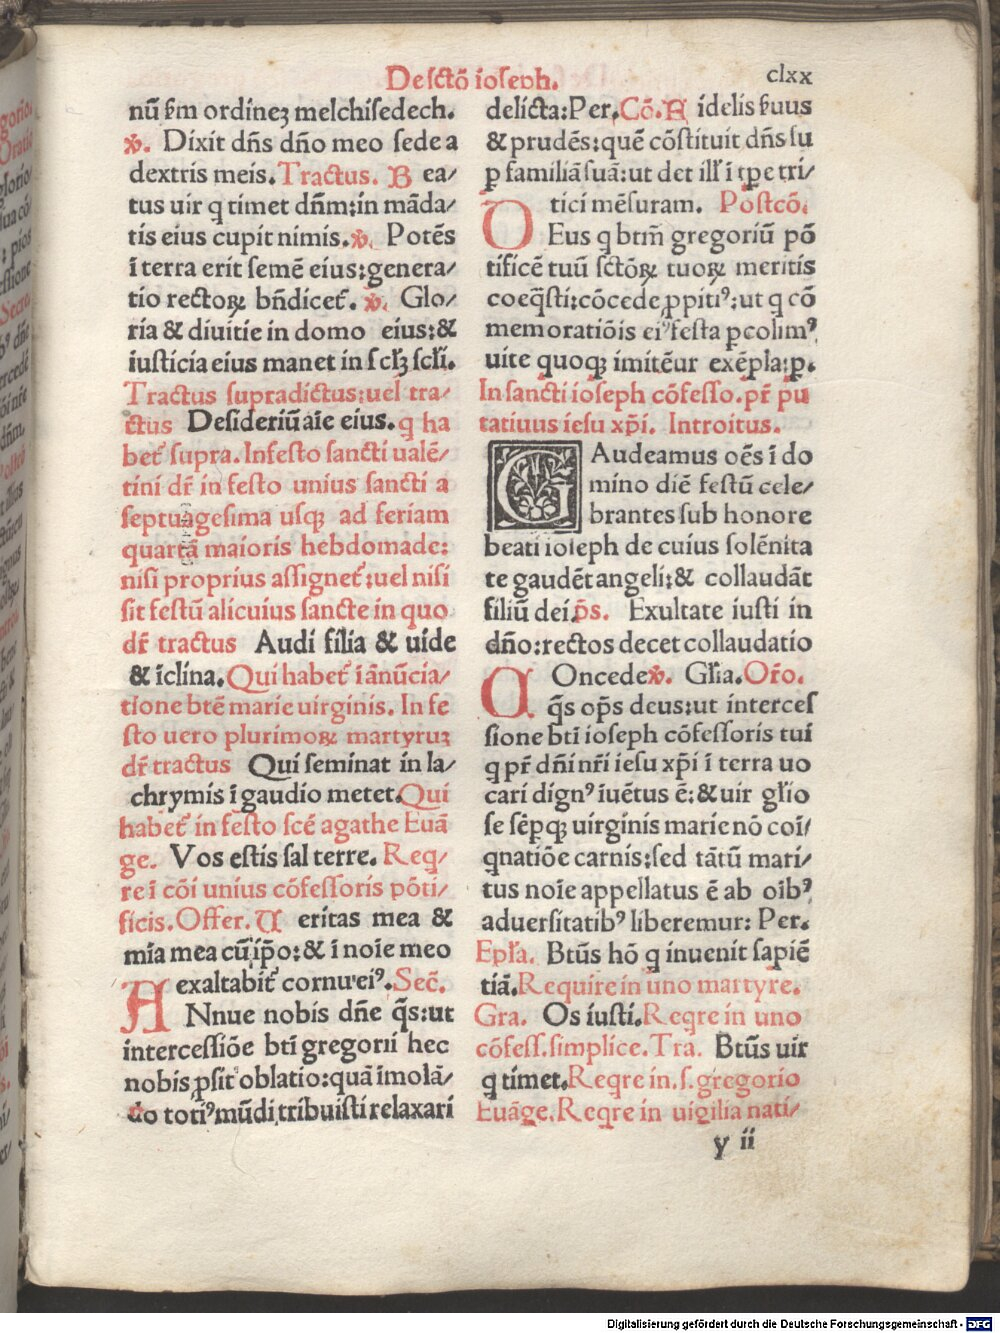 De sctō ioseph.
clxx
nū ẜm ordinez melchisedech.
℣. Dixit dn̄s dn̄o meo sede a
dextris meis. Tractus. B ea/
tus uir q timet dn̄m:in māda/
tis eius cupit nimis. ℣. Potēs
ī terra erit semē eius:genera/
tio rectoꝝ bn̄dicet᷑. ℣. Glo/
ria & diuitie in domo eius:&
iusticia eius manet in sclꝫ scli.
Tractus supradictus:uel tra/
ctus Desideriū aīe eius. q ha
bet᷑ supra. In festo sancti ualē/
tini dr̄ in festo unius sancti a
septuagesima usqꝫ ad feriam
quartā maioris hebdomade:
nisi proprius assignet᷑:uel nisi
sit festū alicuius sancte in quo
dr̄ tractus Audi filia & uide
& īclina. Qui habet᷑ ī ānūcia/
tione btē marie uirginis. In fe
sto uero plurimoꝝ martyruꝫ
dr̄ tractus Qui seminat in la/
chrymis ī gaudio metet. Qui
habet᷑ in festo scē agathe Euā
ge. Vos estis sal terre. Req̄/
re ī cōi unius cōfessoris pōti/
ficis. Offer. U eritas mea &
mīa mea cū ip̄o:& ī noīe meo
exaltabit᷑ cornu eiꝰ. Sec̄.
ANnue nobis dn̄e q̄s:ut
intercessiōe btī gregorii hec
nobis ꝓsit oblatio:quā īmolā/
do totiꝰ mūdi tribuisti relaxari
delicta:Per. Cō. F idelis ẜuus
& prudēs:quē cōstituit dn̄s su
ꝑ familiā suā:ut det ill̓ ī tꝑe tri/
tici mēsuram. Postcō.
DEus q btm̄ gregoriū pō
tificē tuū sctōꝝ tuoꝝ meritis
coeq̄sti:cōcede ꝓpitiꝰ:ut q cō
memoratiōis eiꝰ festa ꝑcolimꝰ
uite quoqꝫ imitēur exēpla:ꝑ.
In sancti ioseph cōfesso. pr̄ pu
tatiuus iesu xp̄i. Introitus.
GAudeamus oēs ī do
mino diē festū cele/
brantes sub honore
beati ioseph de cuius solēnita
te gaudēt angeli:& collaudāt
filiū dei. p̄s. Exultate iusti in
dn̄o:rectos decet collaudatio
COncede ℣. Gl̓ia. Or̄o.
q̄s op̄s deus:ut interces
sione btī ioseph cōfessoris tui
q pr̄ dn̄i nr̄i iesu xp̄i ī terra uo
cari dignꝰ iuētus ē:& uir gl̓io
se sēꝑqꝫ uirginis marie nō coī/
qnatiōe carnis:sed tātū mari/
tus noīe appellatus ē ab oībꝰ
aduersitatibꝰ liberemur: Per.
Epl̓a. Btūs hō q inuenit sapiē
tiā. Require in uno martyre.
Gra. Os iusti. Reqre in uno
cōfess. simplice. Tra. Btūs uir
q timet. Reqre in. s. gregorio
Euāge. Reqre in uigilia nati/
y ii
Digitalisierung gefördert durch die Deutsche Forschungsgemeinschaft - DFG